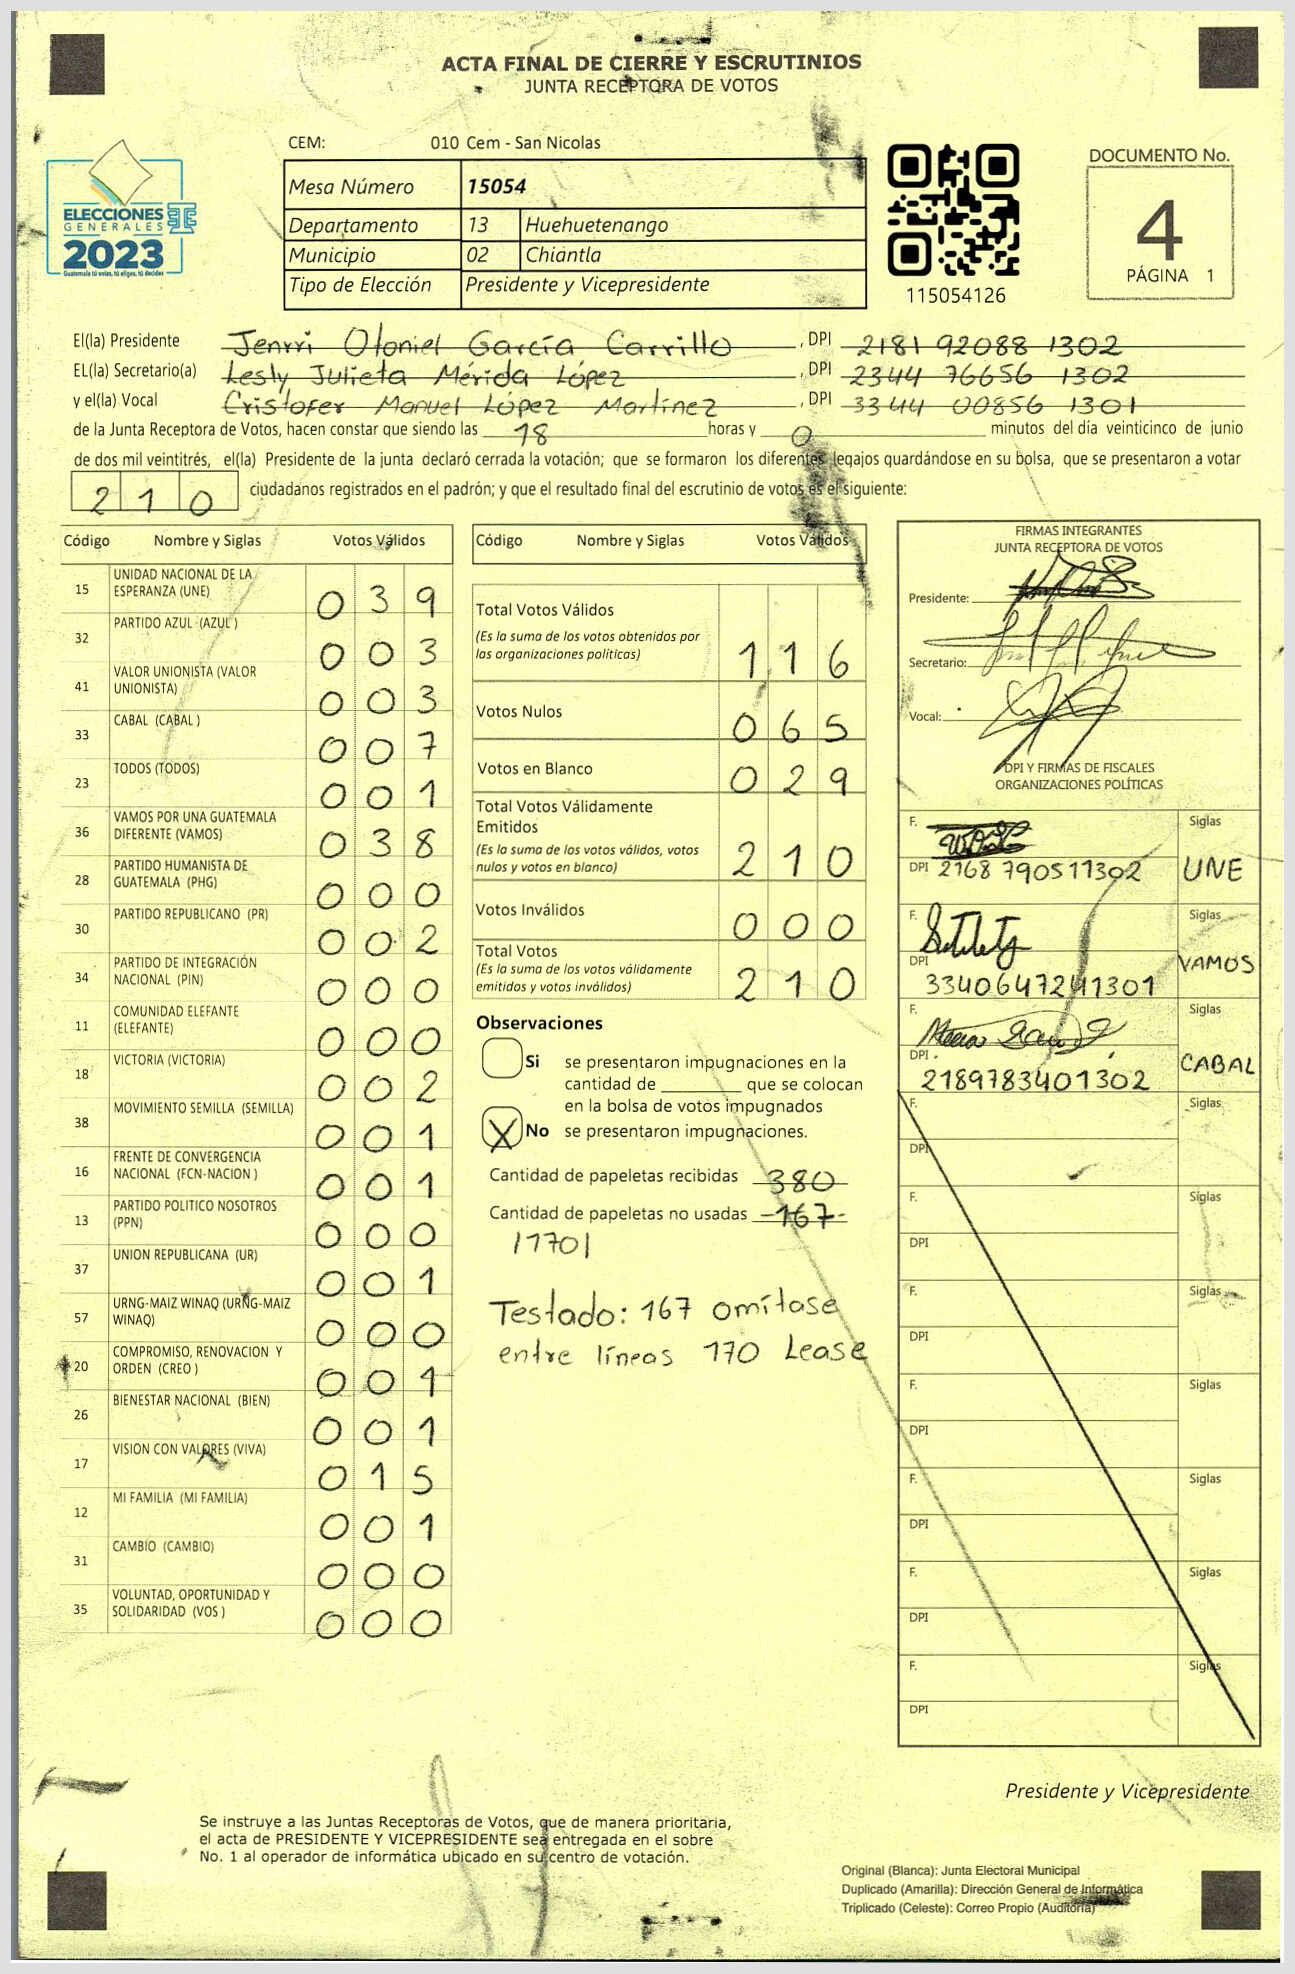 ACTA FINAL DE CIERRE Y ESCRUTINIOS
JUNTA RECEPTORA DE VOTOS
CEM: 010 Cem - San Nicolas
ELECCIONES
GENERALES
2023
Guatemala tú votas, tú eliges, tú decides
Mesa Número 15054
Departamento 13 Huehuetenango
Municipio 02 Chiantla
Tipo de Elección Presidente y Vicepresidente
115054126
DOCUMENTO No.
4
PÁGINA 1
El(la) Presidente Jenrri Otoniel García Carrillo , DPI 2181 92088 1302
EL(la) Secretario(a) Lesly Julieta Mérida López , DPI 2344 76656 1302
y el(la) Vocal Cristofer Manuel López Martínez , DPI 3344 00856 1301
de la Junta Receptora de Votos, hacen constar que siendo las 18 horas y 0 minutos del día veinticinco de junio
de dos mil veintitrés, el(la) Presidente de la junta declaró cerrada la votación; que se formaron los diferentes legajos guardándose en su bolsa, que se presentaron a votar
210 ciudadanos registrados en el padrón; y que el resultado final del escrutinio de votos es el siguiente:
Código Nombre y Siglas Votos Válidos
15 UNIDAD NACIONAL DE LA ESPERANZA (UNE) 039
32 PARTIDO AZUL (AZUL ) 003
41 VALOR UNIONISTA (VALOR UNIONISTA) 003
33 CABAL (CABAL ) 007
23 TODOS (TODOS) 001
36 VAMOS POR UNA GUATEMALA DIFERENTE (VAMOS) 038
28 PARTIDO HUMANISTA DE GUATEMALA (PHG) 000
30 PARTIDO REPUBLICANO (PR) 002
34 PARTIDO DE INTEGRACIÓN NACIONAL (PIN) 000
11 COMUNIDAD ELEFANTE (ELEFANTE) 000
18 VICTORIA (VICTORIA) 002
38 MOVIMIENTO SEMILLA (SEMILLA) 001
16 FRENTE DE CONVERGENCIA NACIONAL (FCN-NACION ) 001
13 PARTIDO POLITICO NOSOTROS (PPN) 000
37 UNION REPUBLICANA (UR) 001
57 URNG-MAIZ WINAQ (URNG-MAIZ WINAQ) 000
20 COMPROMISO, RENOVACION Y ORDEN (CREO ) 001
26 BIENESTAR NACIONAL (BIEN) 001
17 VISION CON VALORES (VIVA) 015
12 MI FAMILIA (MI FAMILIA) 001
31 CAMBIO (CAMBIO) 000
35 VOLUNTAD, OPORTUNIDAD Y SOLIDARIDAD (VOS ) 000
Código Nombre y Siglas Votos Válidos
Total Votos Válidos
(Es la suma de los votos obtenidos por
las organizaciones políticas) 116
Votos Nulos 065
Votos en Blanco 029
Total Votos Válidamente
Emitidos
(Es la suma de los votos válidos, votos
nulos y votos en blanco) 210
Votos Inválidos 000
Total Votos
(Es la suma de los votos válidamente
emitidos y votos inválidos) 210
Observaciones
Si se presentaron impugnaciones en la
cantidad de que se colocan
en la bolsa de votos impugnados
X No se presentaron impugnaciones.
Cantidad de papeletas recibidas 380
Cantidad de papeletas no usadas -167-
/170/
Testado: 167 omítase
entre líneas 170 Lease
FIRMAS INTEGRANTES
JUNTA RECEPTORA DE VOTOS
Presidente:
Secretario:
Vocal:
DPI Y FIRMAS DE FISCALES
ORGANIZACIONES POLÍTICAS
F. Siglas
DPI 2168 790511302 UNE
F. Siglas
DPI 3340647241301 VAMOS
F. Siglas
DPI 2189783401302 CABAL
F. Siglas
DPI
F. Siglas
DPI
F. Siglas
DPI
F. Siglas
DPI
F. Siglas
DPI
F. Siglas
DPI
F. Siglas
DPI
Presidente y Vicepresidente
Se instruye a las Juntas Receptoras de Votos, que de manera prioritaria,
el acta de PRESIDENTE Y VICEPRESIDENTE sea entregada en el sobre
No. 1 al operador de informática ubicado en su centro de votación.
Original (Blanca): Junta Electoral Municipal
Duplicado (Amarilla): Dirección General de Informática
Triplicado (Celeste): Correo Propio (Auditoría)